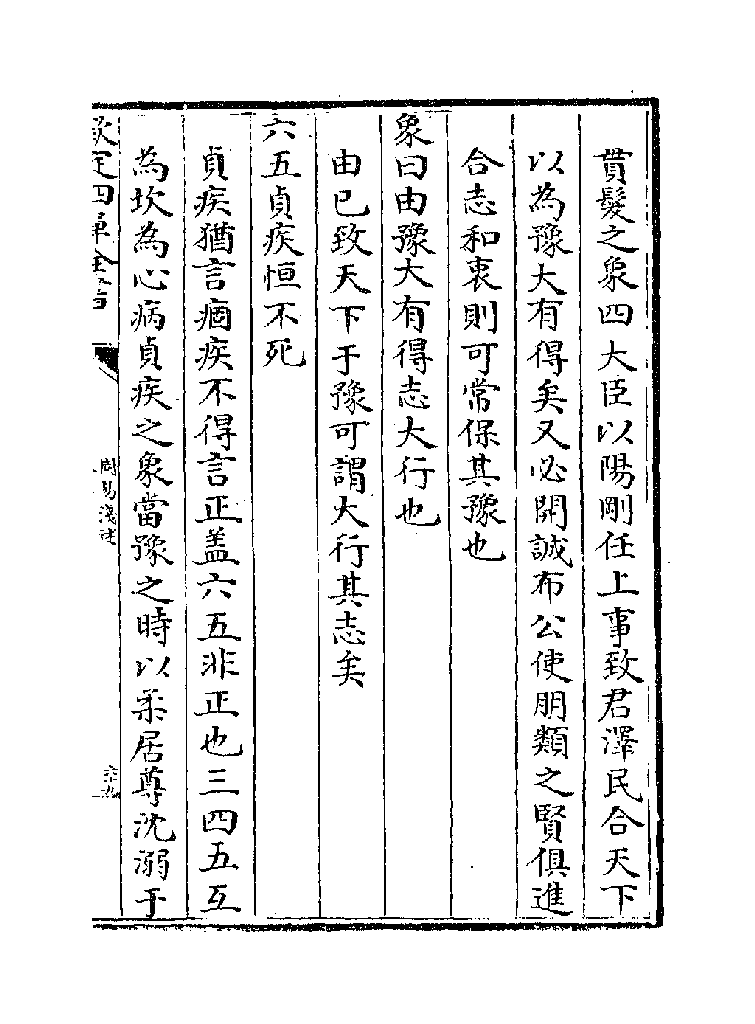 貫髮之象四大臣以陽剛任上事致君澤民合天下
以為豫大有得矣又必開誠布公使朋類之賢俱進
合志和衷則可常保其豫也
象曰由豫大有得志大行也
由已致天下于豫可謂大行其志矣
六五貞疾恒不死
貞疾猶言痼疾不得言正盖六五非正也三四五互
為坎為心病貞疾之象當豫之時以柔居尊沈溺于
欽定四庫全書
周易淺述
六十九